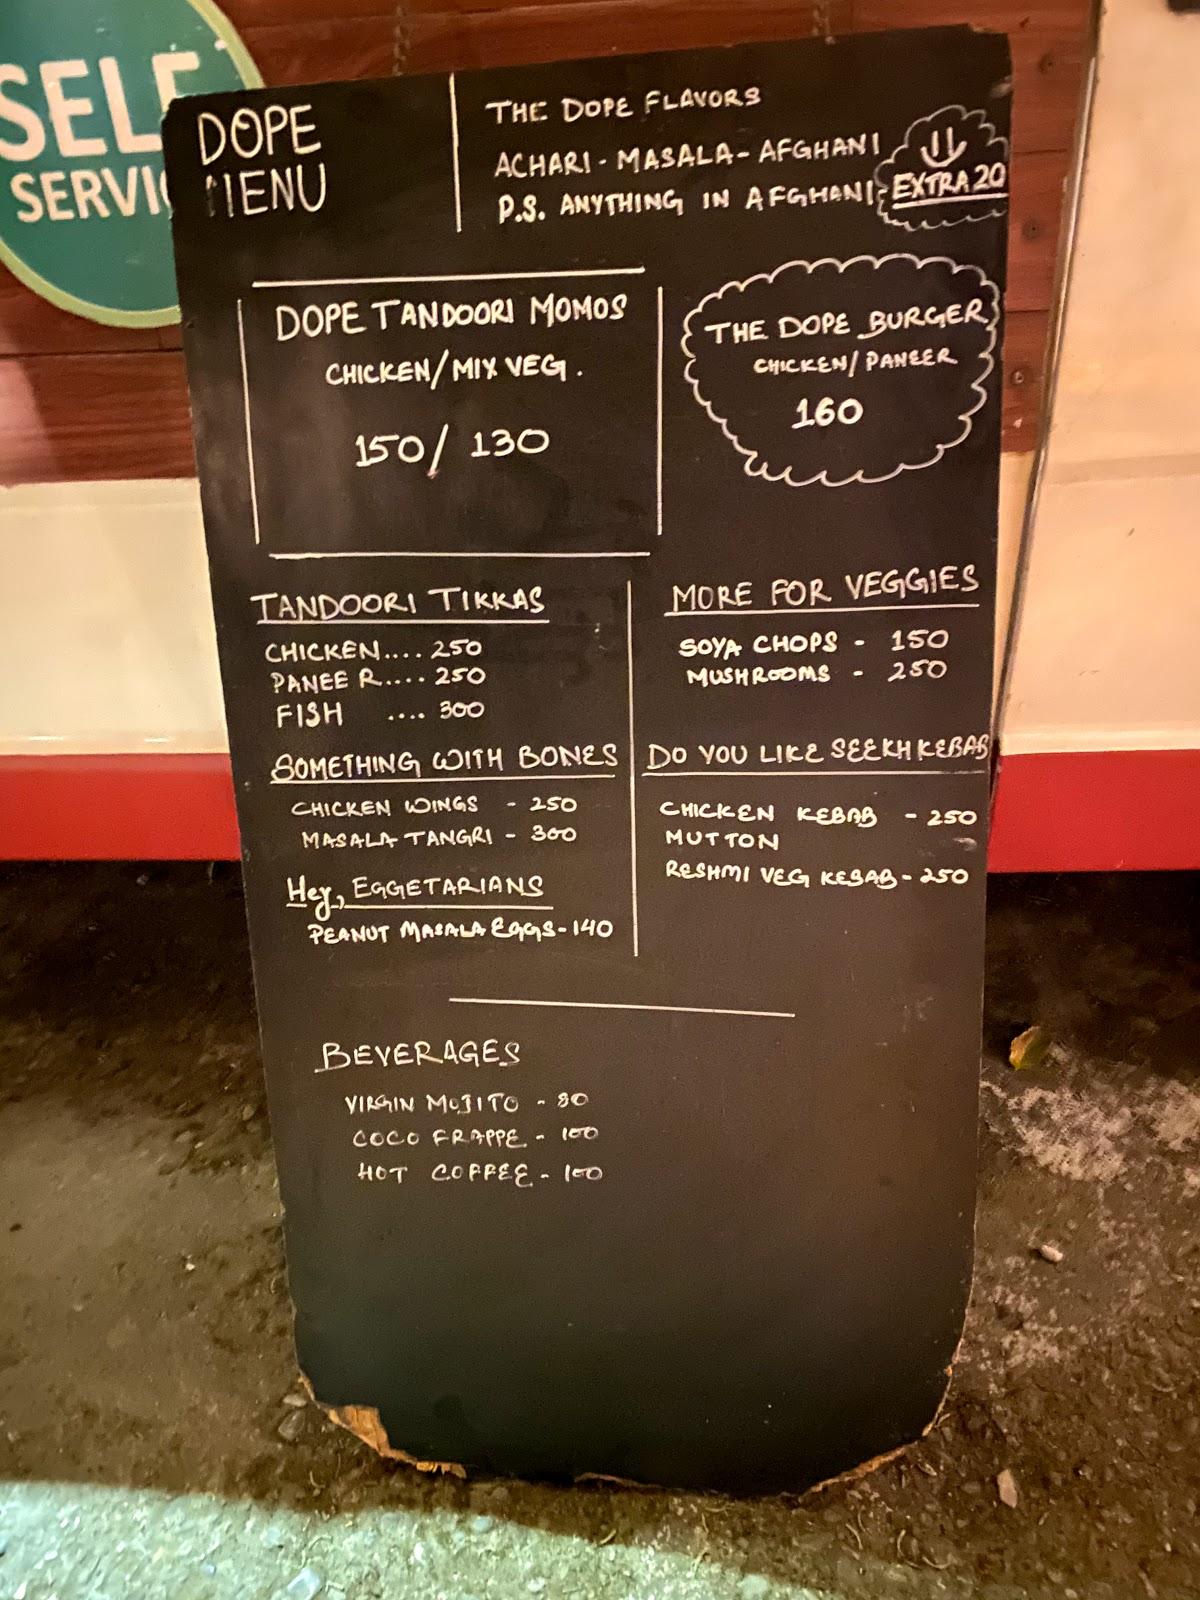 SELF
SERVI
DOPE
MENU
THE DOPE FLAVORS
ACHARI - MASALA - AFGHANI
P.S. ANYTHING IN AFGHANI - EXTRA 20
DOPE TANDOORI MOMOS
CHICKEN/MIX VEG.
150/ 130
THE DOPE BURGER
CHICKEN/PANEER
160
TANDOORI TIKKAS
CHICKEN.... 250
PANEER.... 250
FISH .... 300
SOMETHING WITH BONES
CHICKEN WINGS - 250
MASALA TANGRI - 300
Hey, EGGETARIANS
PEANUT MASALA EGGS - 140
MORE FOR VEGGIES
SOYA CHOPS - 150
MUSHROOMS - 250
DO YOU LIKE SEEKH KEBAB
CHICKEN KEBAB - 250
MUTTON
RESHMI VEG KEBAB - 250
BEVERAGES
VIRGIN MOJITO - 80
COCO FRAPPE - 100
HOT COFFEE - 100